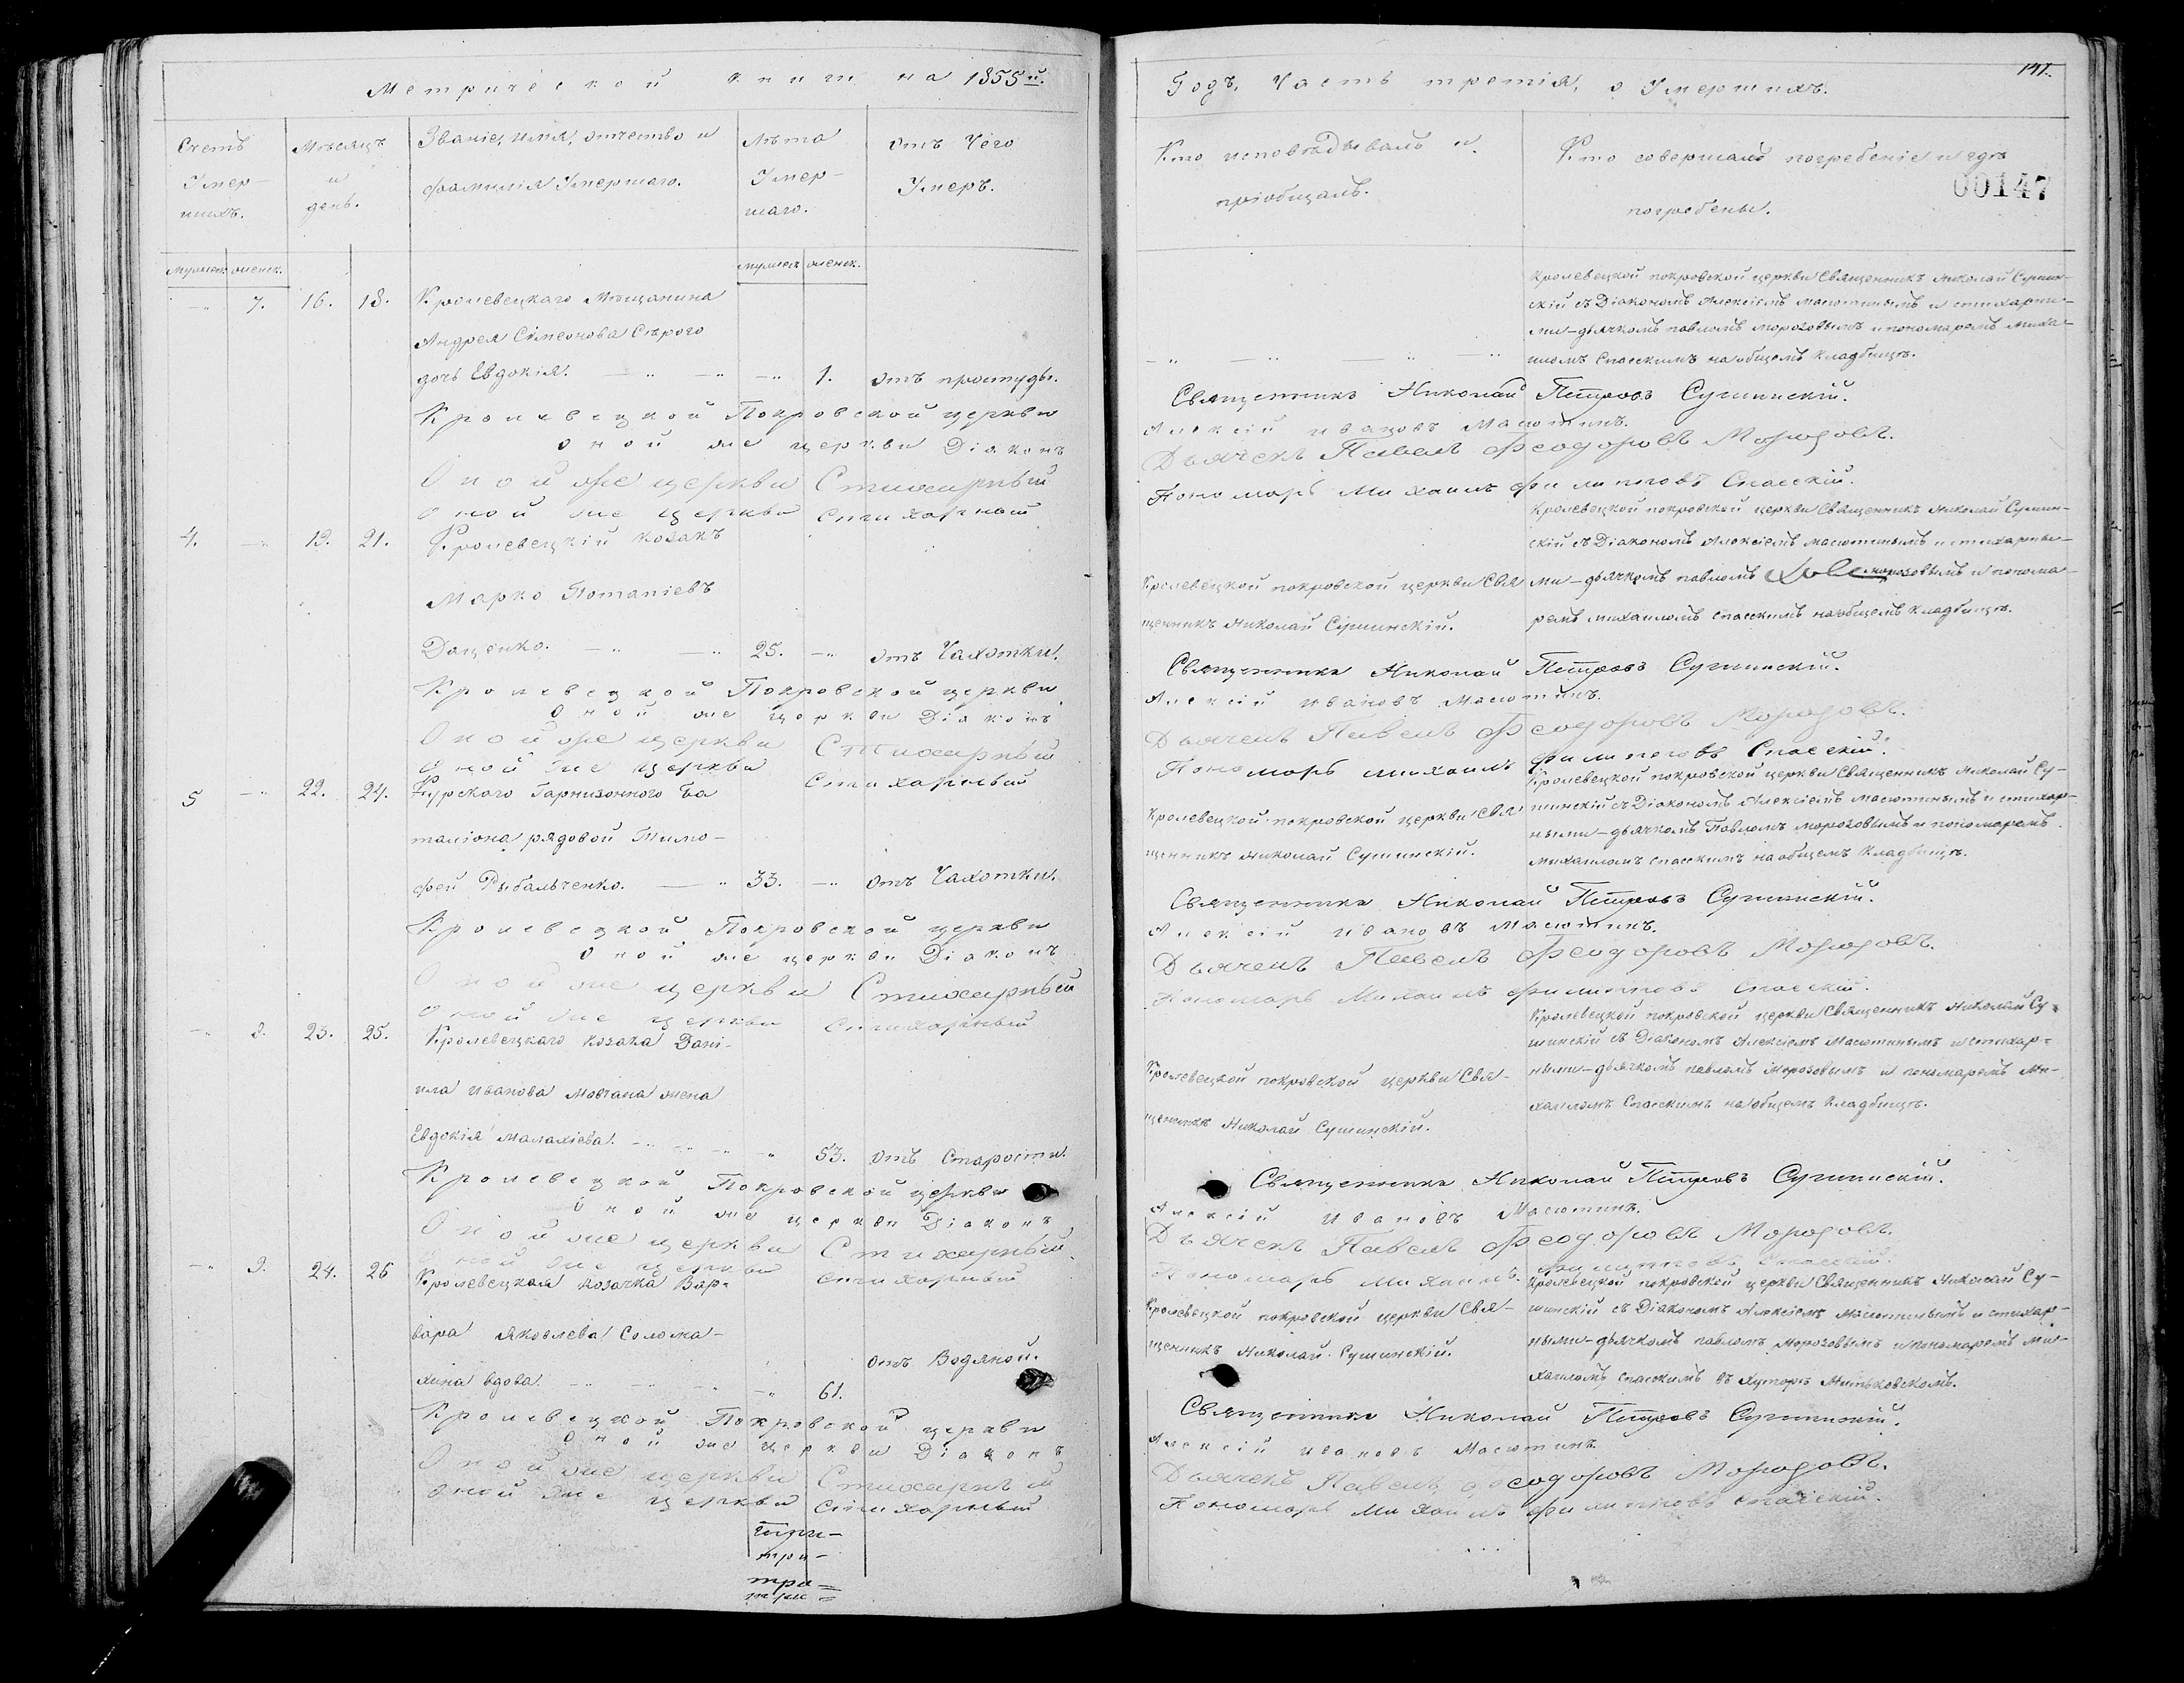 Метрической книги на 1855й.
Счетъ Умер- шихъ.
Мѣсяцъ и день.
Званіе, имя, отчество и фамилія Умершаго.
Лѣта Умер- шаго.
Отъ Чего Умеръ.
мужеск. женск.
мужеск. женск.
7. 16. 18. Кролевецкаго Мѣщанина
Андрея Симеонова Сѣрого
дочь Евдокія. 1. отъ простуды.
Кролевецкой Покровской церкви
Оной же церкви Діаконъ
Оной же церкви Стихарный
Оной же церкви Стихарный
4. 19. 21. Кролевецкій козакъ
Марко Потапіевъ
Даценко. 25. отъ Чахотки.
Кролевецкой Покровской церкви
Оной же церкви Діаконъ
Оной же церкви Стихарный
Оной же церкви Стихарный
5 22. 24. Курскаго Гарнизонного Ба
таліона рядовой Тимо-
фей Рыбальченко. 33. отъ Чахотки.
Кролевецкой Покровской церкви
Оной же церкви Діаконъ
Оной же церкви Стихарный
Оной же церкви Стихарный
23. 25. Кролевецкаго козака Дані-
ила Иванова Мовчана жена
Евдокія Малахіева. 53. отъ Старости.
Кролевецкой Покровской церкви
Оной же церкви Діаконъ
Оной же церкви Стихарный
Оной же церкви Стихарный
9. 24. 26 Кролевецкая козачка Вар-
вара Яковлева Солома-
отъ Водяной.
хина вдова. 61.
Кролевецкой Покровской церкви
Оной же церкви Діаконъ
Оной же церкви Стихарный
Оной же церкви Стихарный
три-
три=
три=
Годъ, Часть третія, о Умершихъ.
147.
Кто исповѣдывалъ и пріобщалъ.
Кто совершалъ погребеніе и гдѣ погребены.
00147
Кролевецкой покровской церкви Священникъ Николай Сушин-
скій съ Діакономъ Алексіемъ Масютинымъ и стихарны-
ми-дьячкомъ павломъ морозовымъ и пономаремъ миха-
иломъ Спасскимъ на общемъ кладбищѣ.
Священникъ Николай Петровъ Сушинскій.
Алексій Ивановъ Масютинъ.
Дьячекъ Павелъ Феодоровъ Морозовъ.
Пономарь Михаилъ Филипповъ Спасскій.
Кролевецкой покровской церкви Священникъ Николай Сушин-
скій съ Діакономъ Алексіемъ масютинымъ и стихарны-
Кролевецкой покровской церкви Свя ми-дьячкомъ павломъ морозовымъ и понома-
щенникъ Николай Сушинскій. ремъ михаиломъ спасскимъ на общемъ кладбищѣ.
Священникъ Николай Петровъ Сушинскій.
Алексій Ивановъ Масютинъ.
Дьячекъ Павелъ Феодоровъ Морозовъ.
Пономарь михаилъ Филипповъ Спасскій.
Кролевецкой покровской церкви Священникъ Николай Су-
Кролевецкой покровской церкви Свя шинскій съ Діакономъ Алексіемъ масютинымъ и стихар-
ными-дьячкомъ Павломъ морозовымъ и пономаремъ
щенникъ Николай Сушинскій. михаиломъ спасскимъ на общемъ кладбищѣ.
Священникъ Николай Петровъ Сушинскій.
Алексій Ивановъ Масютинъ.
Дьячекъ Павелъ Феодоровъ Морозовъ.
Пономарь Михаилъ Филипповъ Спасскій.
Кролевецкой покровской церкви Священникъ Николай Су-
шинскій съ Діакономъ Алексіемъ Масютинымъ и стихар-
Кролевецкой покровской церкви Свя- ными-дьячкомъ павломъ Морозовымъ и пономаремъ Ми-
щенникъ Николай Сушинскій. хаиломъ Спасскимъ на общемъ кладбищѣ.
Священникъ Николай Петровъ Сушинскій.
Алексій Ивановъ Масютинъ.
Дьячекъ Павелъ Феодоровъ Морозовъ.
Пономарь Михаилъ Филипповъ Спасскій.
Кролевецкой покровской церкви Священникъ Николай Су-
Кролевецкой покровской церкви Свя- шинскій съ Діакономъ Алексіемъ Масютинымъ и стихар-
щенникъ Николай Сушинскій. ными-дьячкомъ павломъ Морозовымъ и пономаремъ ми-
хаиломъ спасскимъ въ хуторѣ
Священникъ Николай Петровъ Сушинскій.
Алексій Ивановъ Масютинъ.
Дьячекъ Павелъ Феодоровъ Морозовъ.
Пономарь Михаилъ Филипповъ Спасскій.